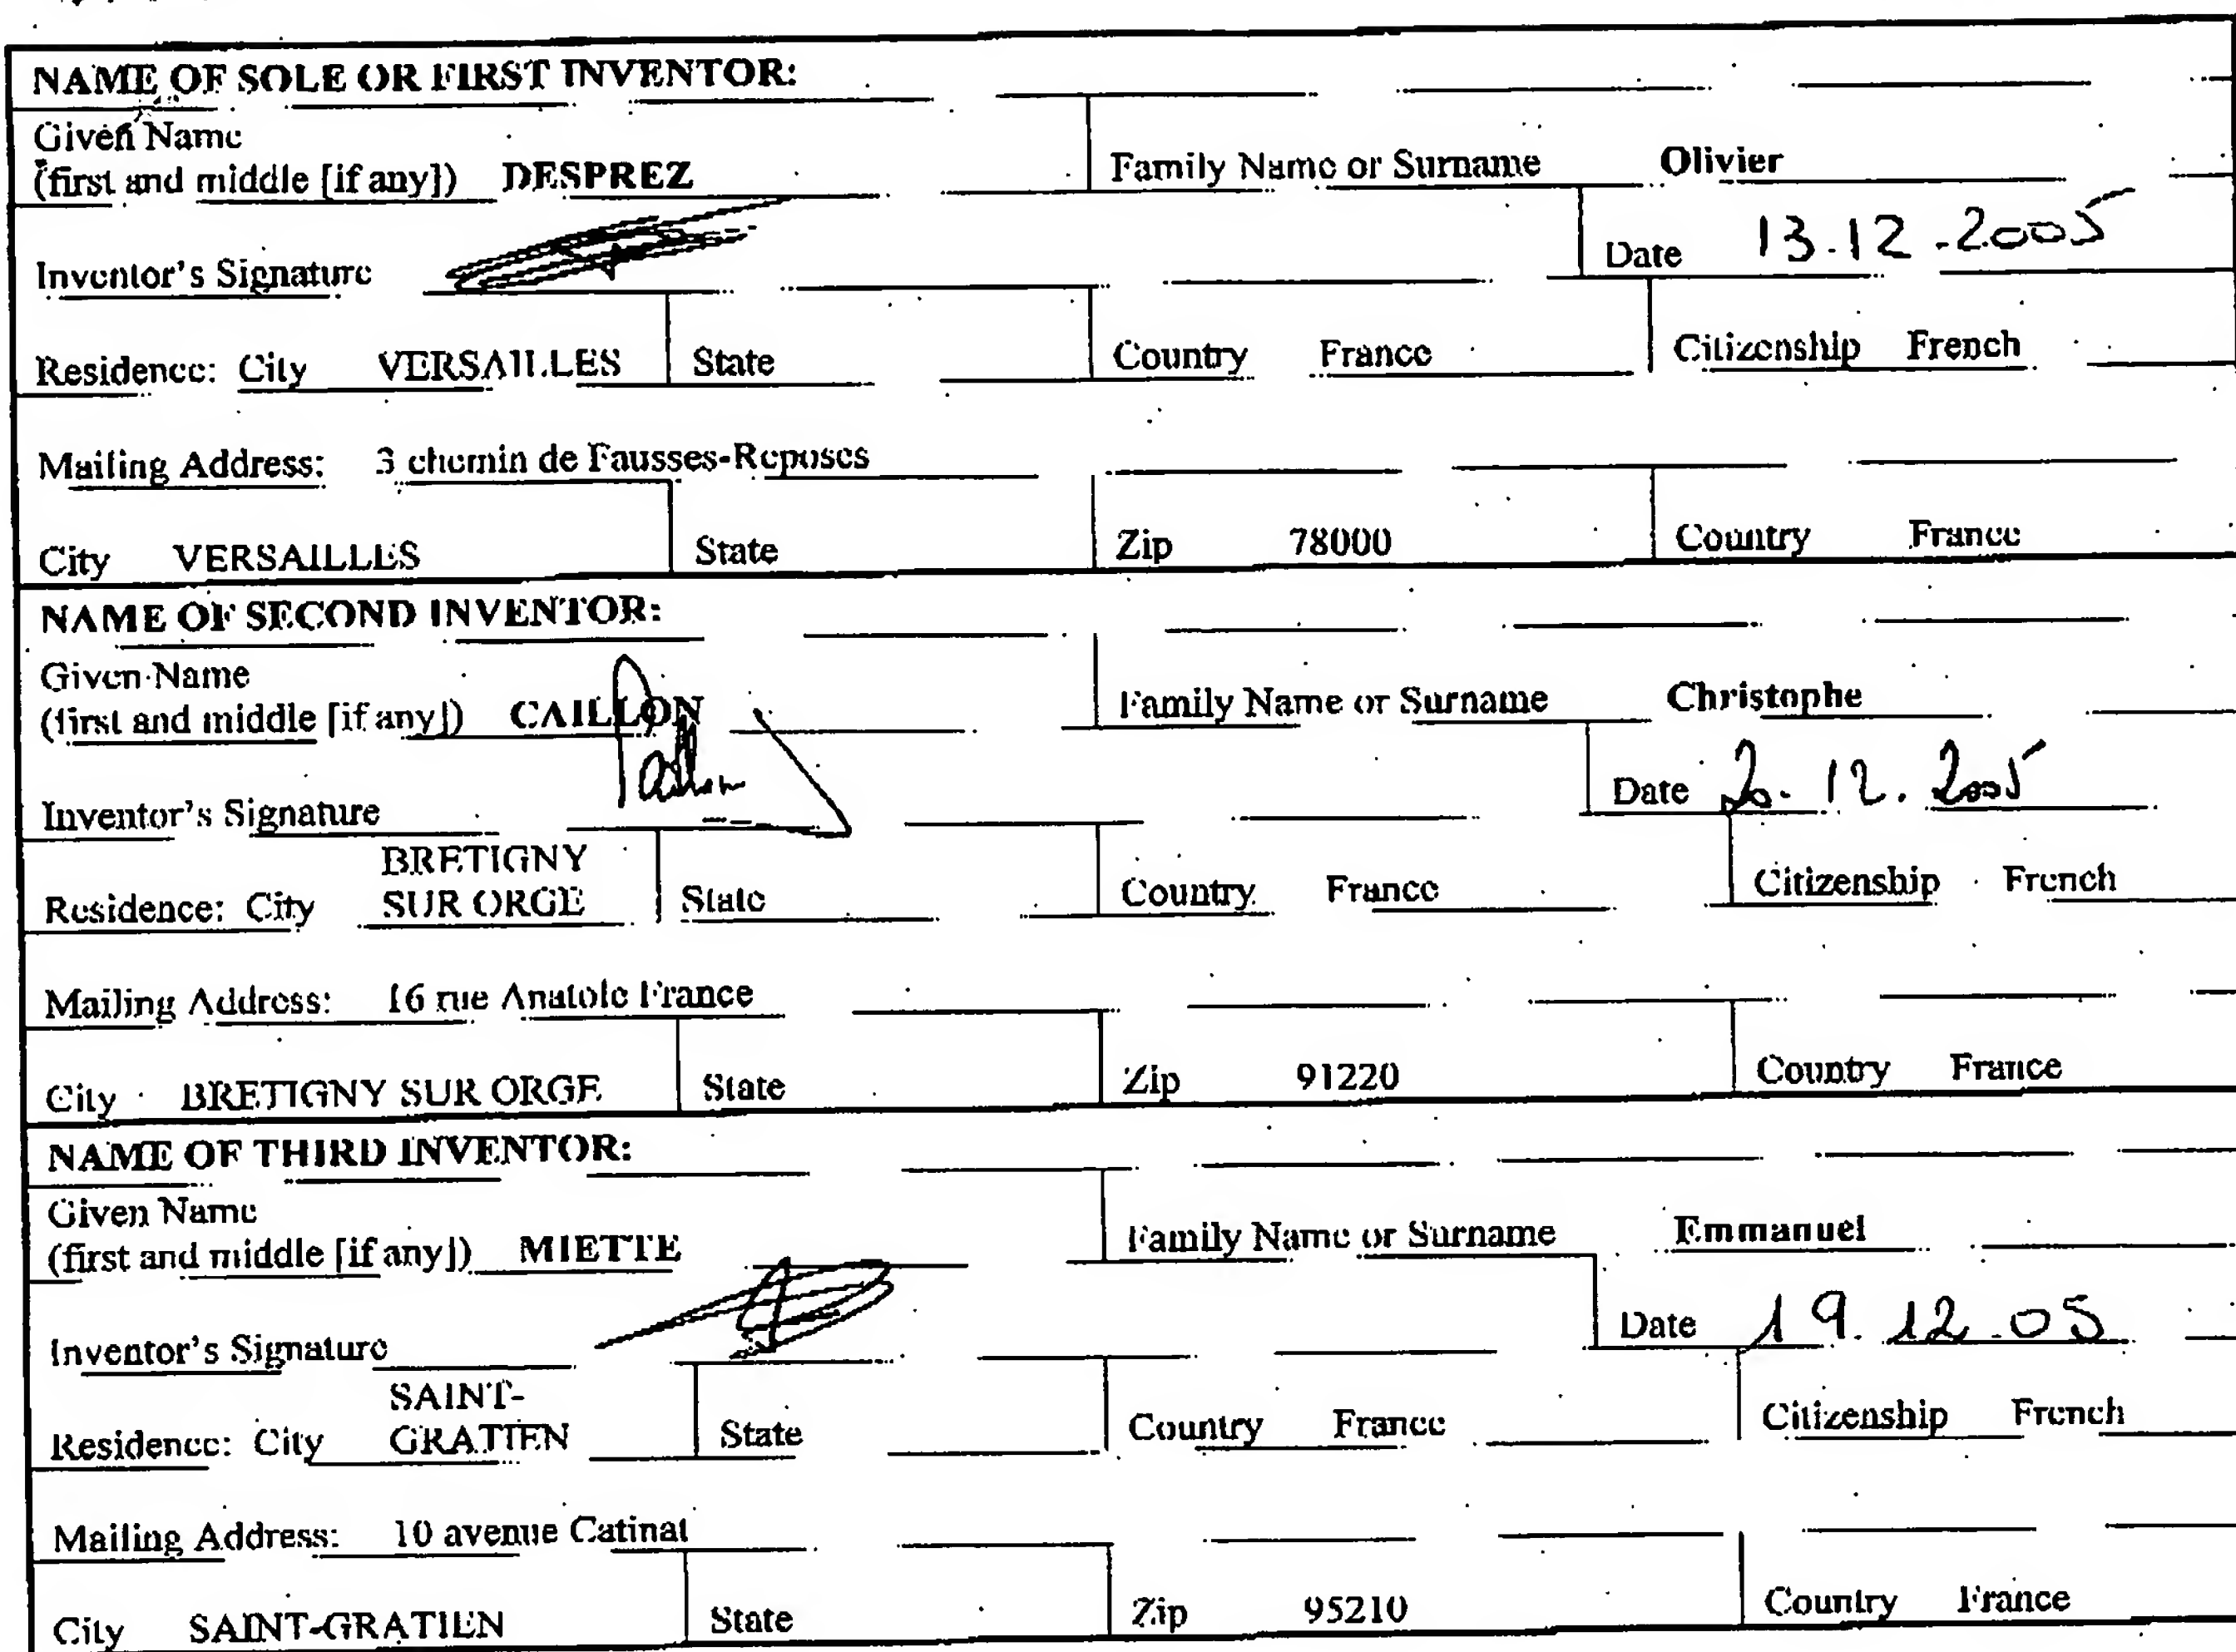 NAME OF SOLE OR FIRST INVENTOR:
Given Name
(first and middle [if any]) DESPREZ Family Name or Surname Olivier
Inventor's Signature Date 13.12.2005
Residence: City VERSAILLES State Country France Citizenship French
Mailing Address: 3 chemin de Fausses-Reposes
City VERSAILLES State Zip 78000 Country France
NAME OF SECOND INVENTOR:
Given Name
(first and middle [if any]) CAILLON Family Name or Surname Christophe
Inventor's Signature Date 12.2005
BRETIGNY
Residence: City SUR ORGE State Country France Citizenship French
Mailing Address: 16 rue Anatole France
City BRETIGNY SUR ORGE State Zip 91220 Country France
NAME OF THIRD INVENTOR:
Given Name
(first and middle [if any]) MIETTE Family Name or Surname Emmanuel
Inventor's Signature Date 19.12.05
SAINT-
Residence: City GRATIEN State Country France Citizenship French
Mailing Address: 10 avenue Catinat
City SAINT-GRATIEN State Zip 95210 Country France